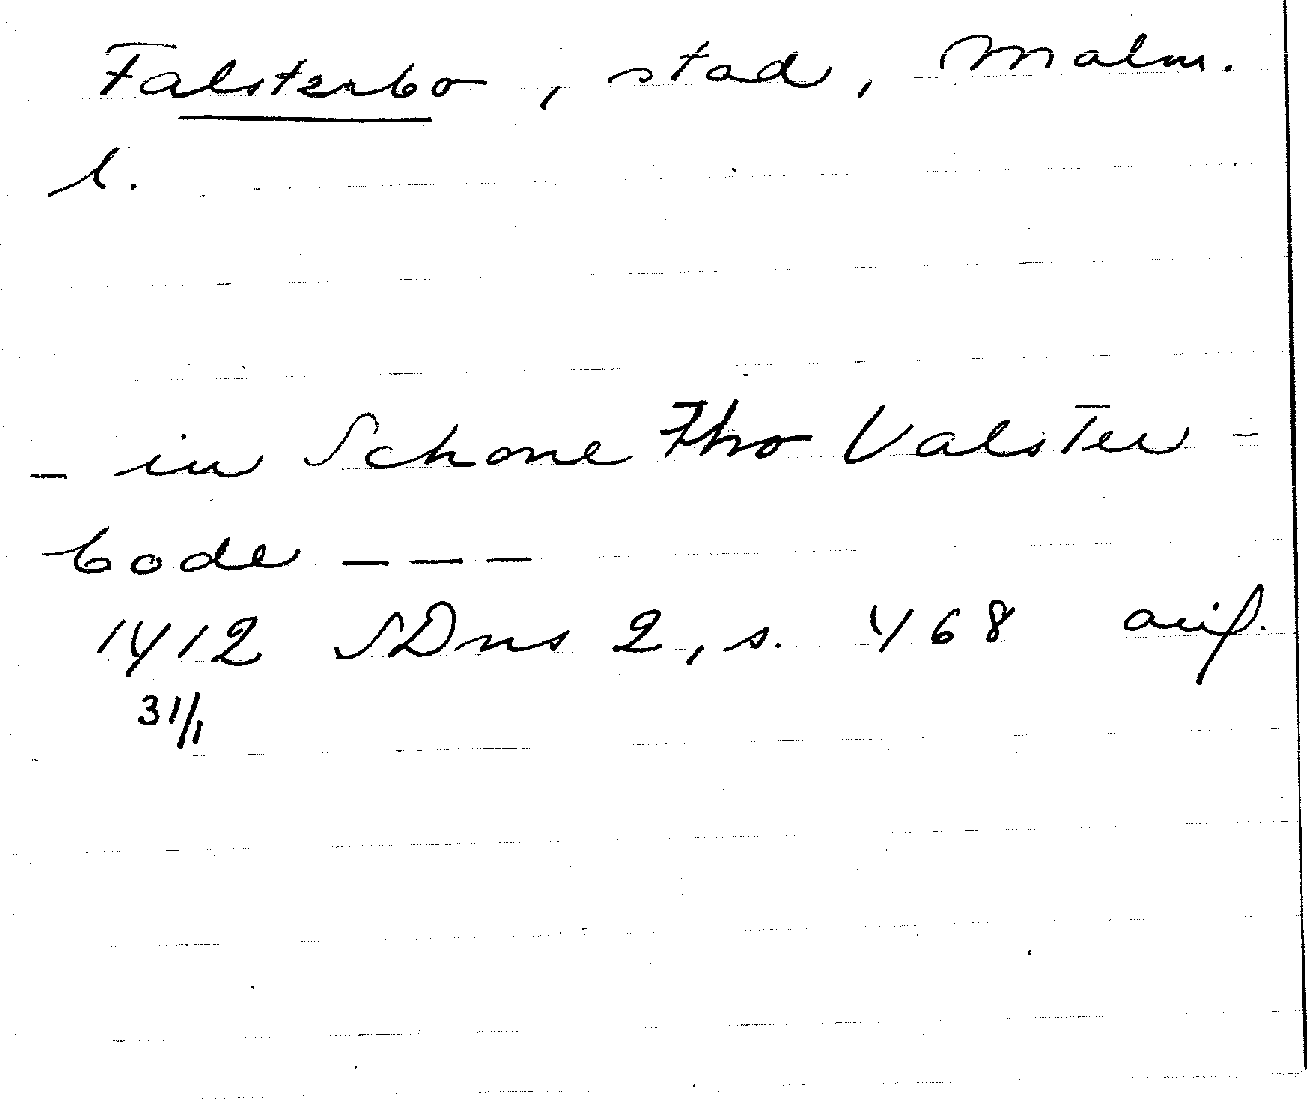 Falsterbo, stad, Malm.
l.
- in Schone Tho Valster-
bode - - -
1412 SDns 2, s. 468 avif.
31/1